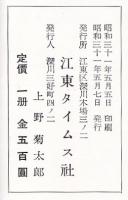 昭和三十一年五月五日 印刷
昭和三十一年五月七日 発行
発行所 江東区深川木場三ノ二
江東タイムス社
発行人 深川三好町四ノ二
上野菊太郎
定價 一册 金五百圓